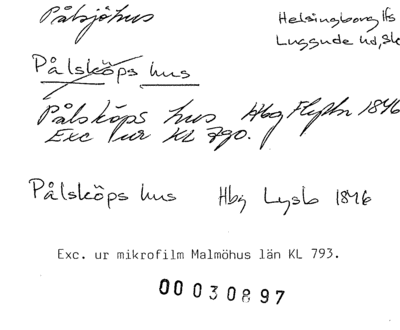 Pålsjöhus
Helsingborg lfs
Luggude hd, Sk
Pålsköps hus
Pålsköps hus Hbg Flyfkn 1846
Exc ur KL 790.
Pålsköps hus Hbg Lysb 1846
Exc. ur mikrofilm Malmöhus län KL 793.
00030897